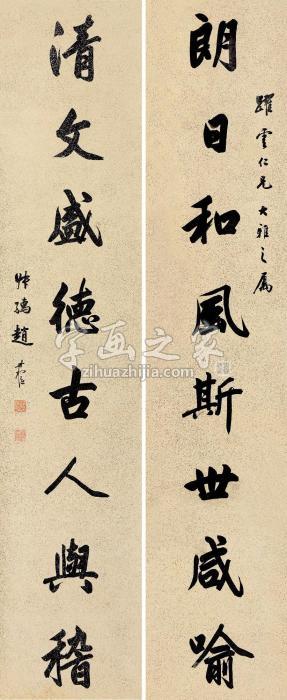 躍雲仁兄大雅之屬
朗日和風斯世咸喻
清文盛德古人與稽
叔孺趙時棡
字画之家
zihuazhijia.com